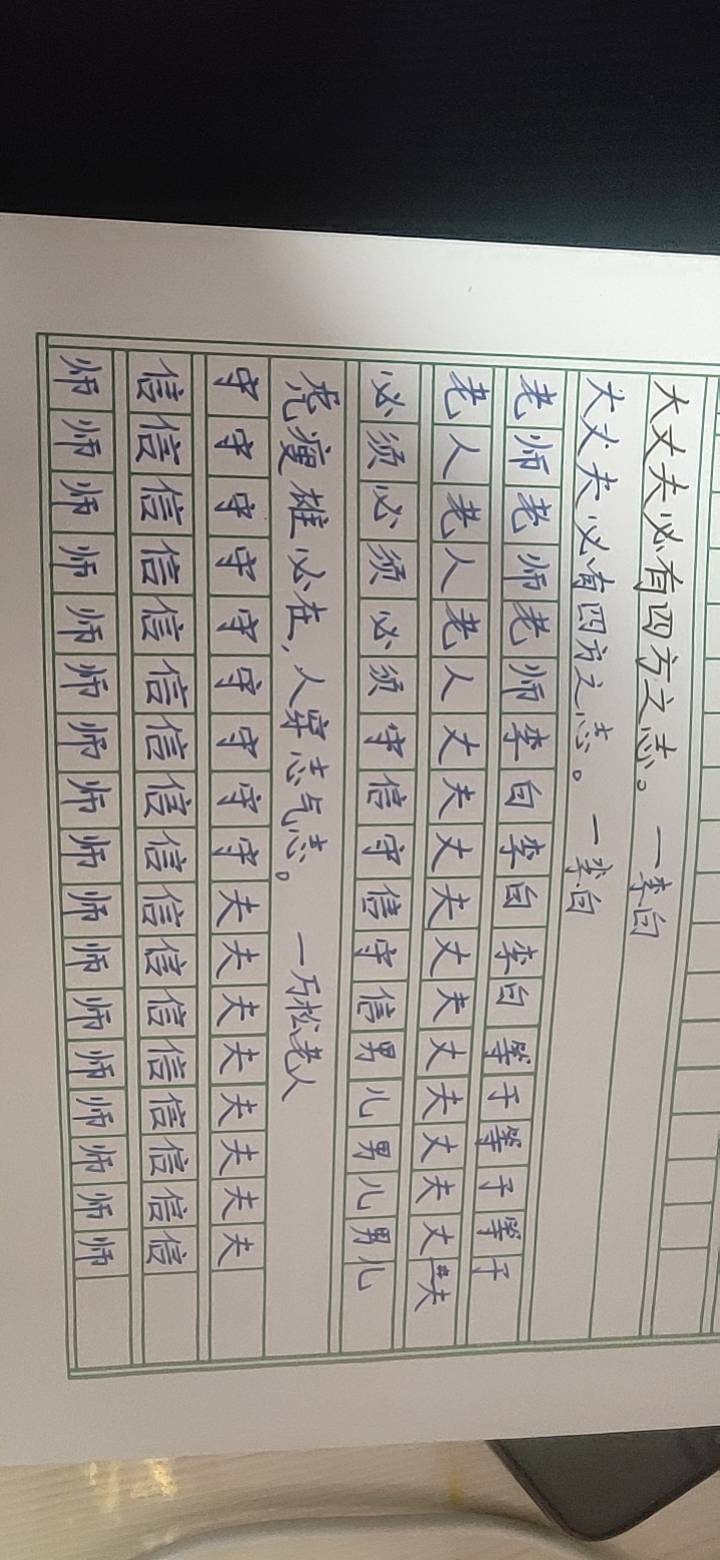 大丈夫必有四方之志。 一李白
大丈夫必有四方之志。 一李白
老师老师老师李白李白李白等于等于等于
老人老人老人丈夫丈夫丈夫丈夫丈夫丈夫
必须必须必须守信守信守信男儿男儿男儿
虎瘦雄必在，人穷志气志。 一万松老人
守守守守守守守守守夫夫夫夫夫夫夫夫
信信信信信信信信信信信信信信信信信
师师师师师师师师师师师师师师师师师